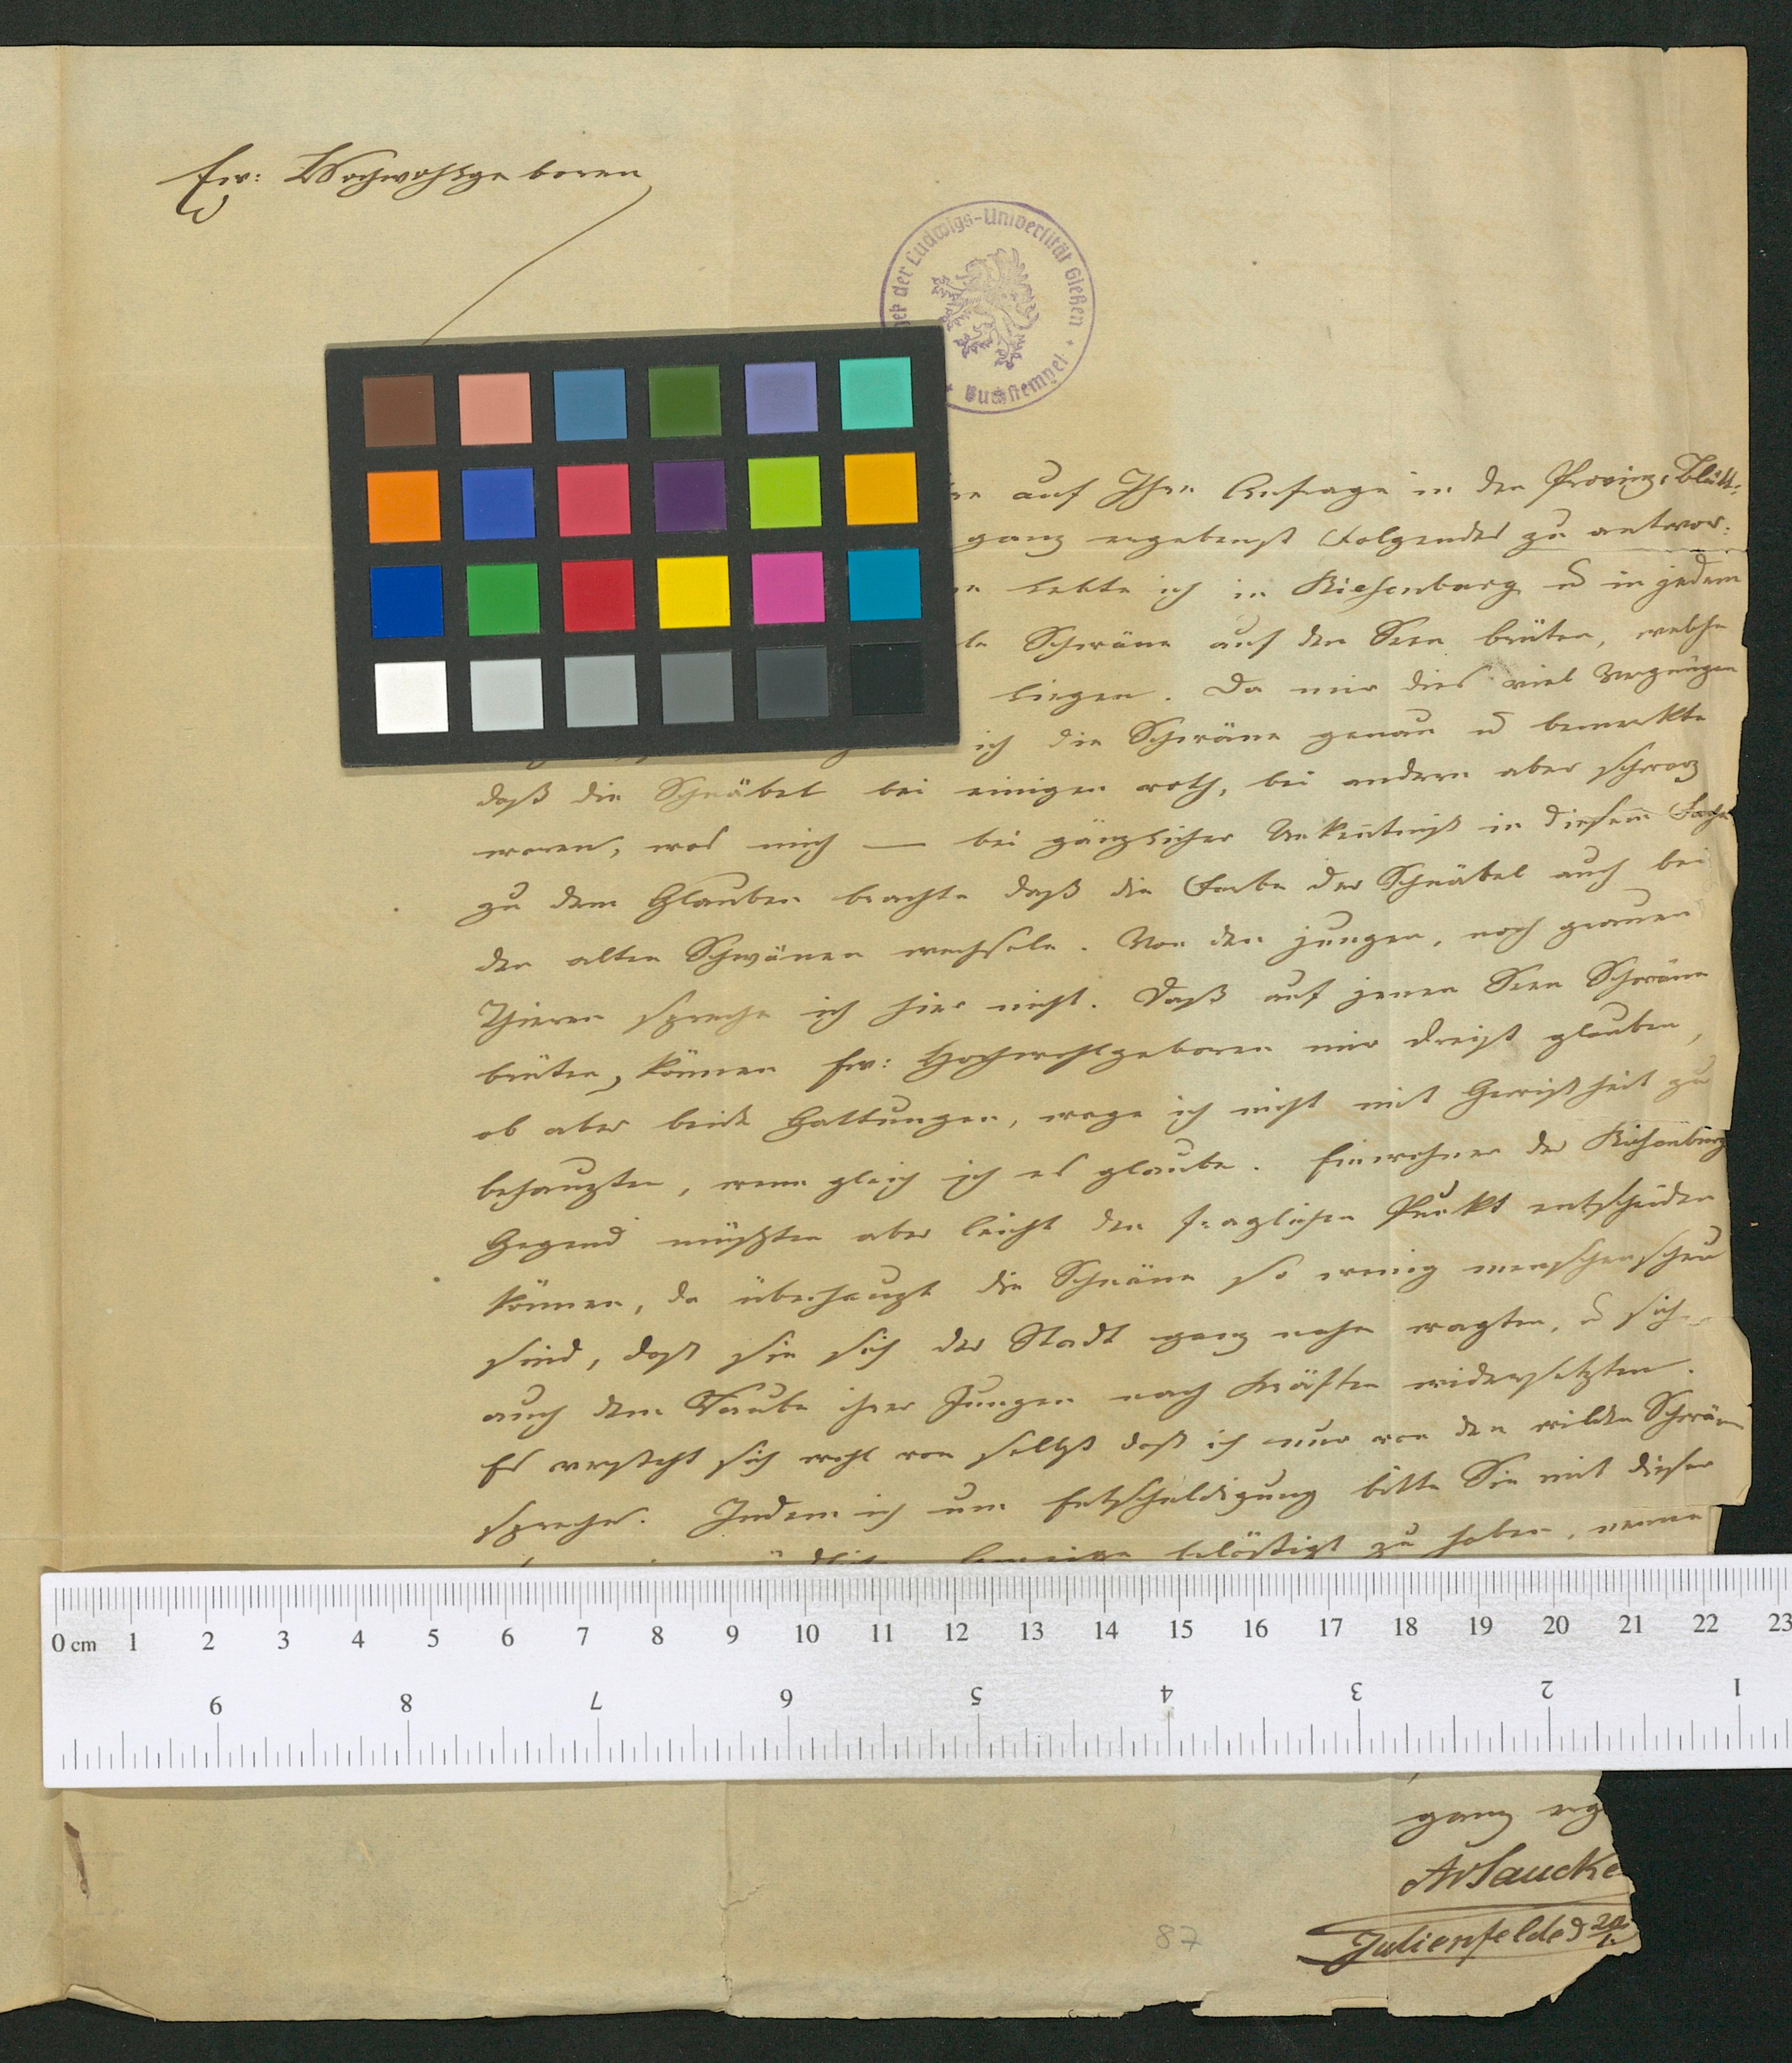 Ew: Hochwohlgeboren
der Ludwigs-Universität Gießen
Buchstempel
auf Ihre Anfrage in den Provinz: Blätt:
ganz ergebenst Folgendes zu antwor:
lebte ich in Riesenburg u in jedem
Schwäne auf den Seen brüten, welche
liegen. Da mir dies viel Vergnügen
ich die Schwäne genau u bemerkte
daß die Schnäbel bei einigen roth, bei andern aber schwarz
waren, was mich — bei gänzlicher Unkentniß in diesem Fache
zu dem Glauben brachte daß die Farbe der Schnäbel auch bei
den alten Schwänen wechsele. Von den jungen, noch grauen
Thieren spreche ich hier nicht. Daß auf jenen Seen Schwäne
brüten, können Ew: Hochwohlgeboren mir dreist glauben,
ob aber beide Gattungen, wage ich nicht mit Gewißheit zu
behaupten, wenn gleich ich es glaube. Einwohner der Riesenburg
Gegend müßten aber leicht den fraglichen Punkt entscheiden
können, da überhaupt die Schwäne so wenig menschenscheu
sind, daß sie sich der Stadt ganz nahe wagten, u sich
auch dem Raube ihrer Jungen nach Kräften widersetzten.
Es versteht sich wohl von selbst daß ich nur von den wilden Schwänen
spreche. Indem ich um Entschuldigung bitte Sie mit dieser
belästigt zu haben, nenne
0 cm 1 2 3 4 5 6 7 8 9 10 11 12 13 14 15 16 17 18 19 20 21 22 23
9 8 7 6 5 4 3 2 1
ganz erg
AvSaucke
Julienfelde d
87